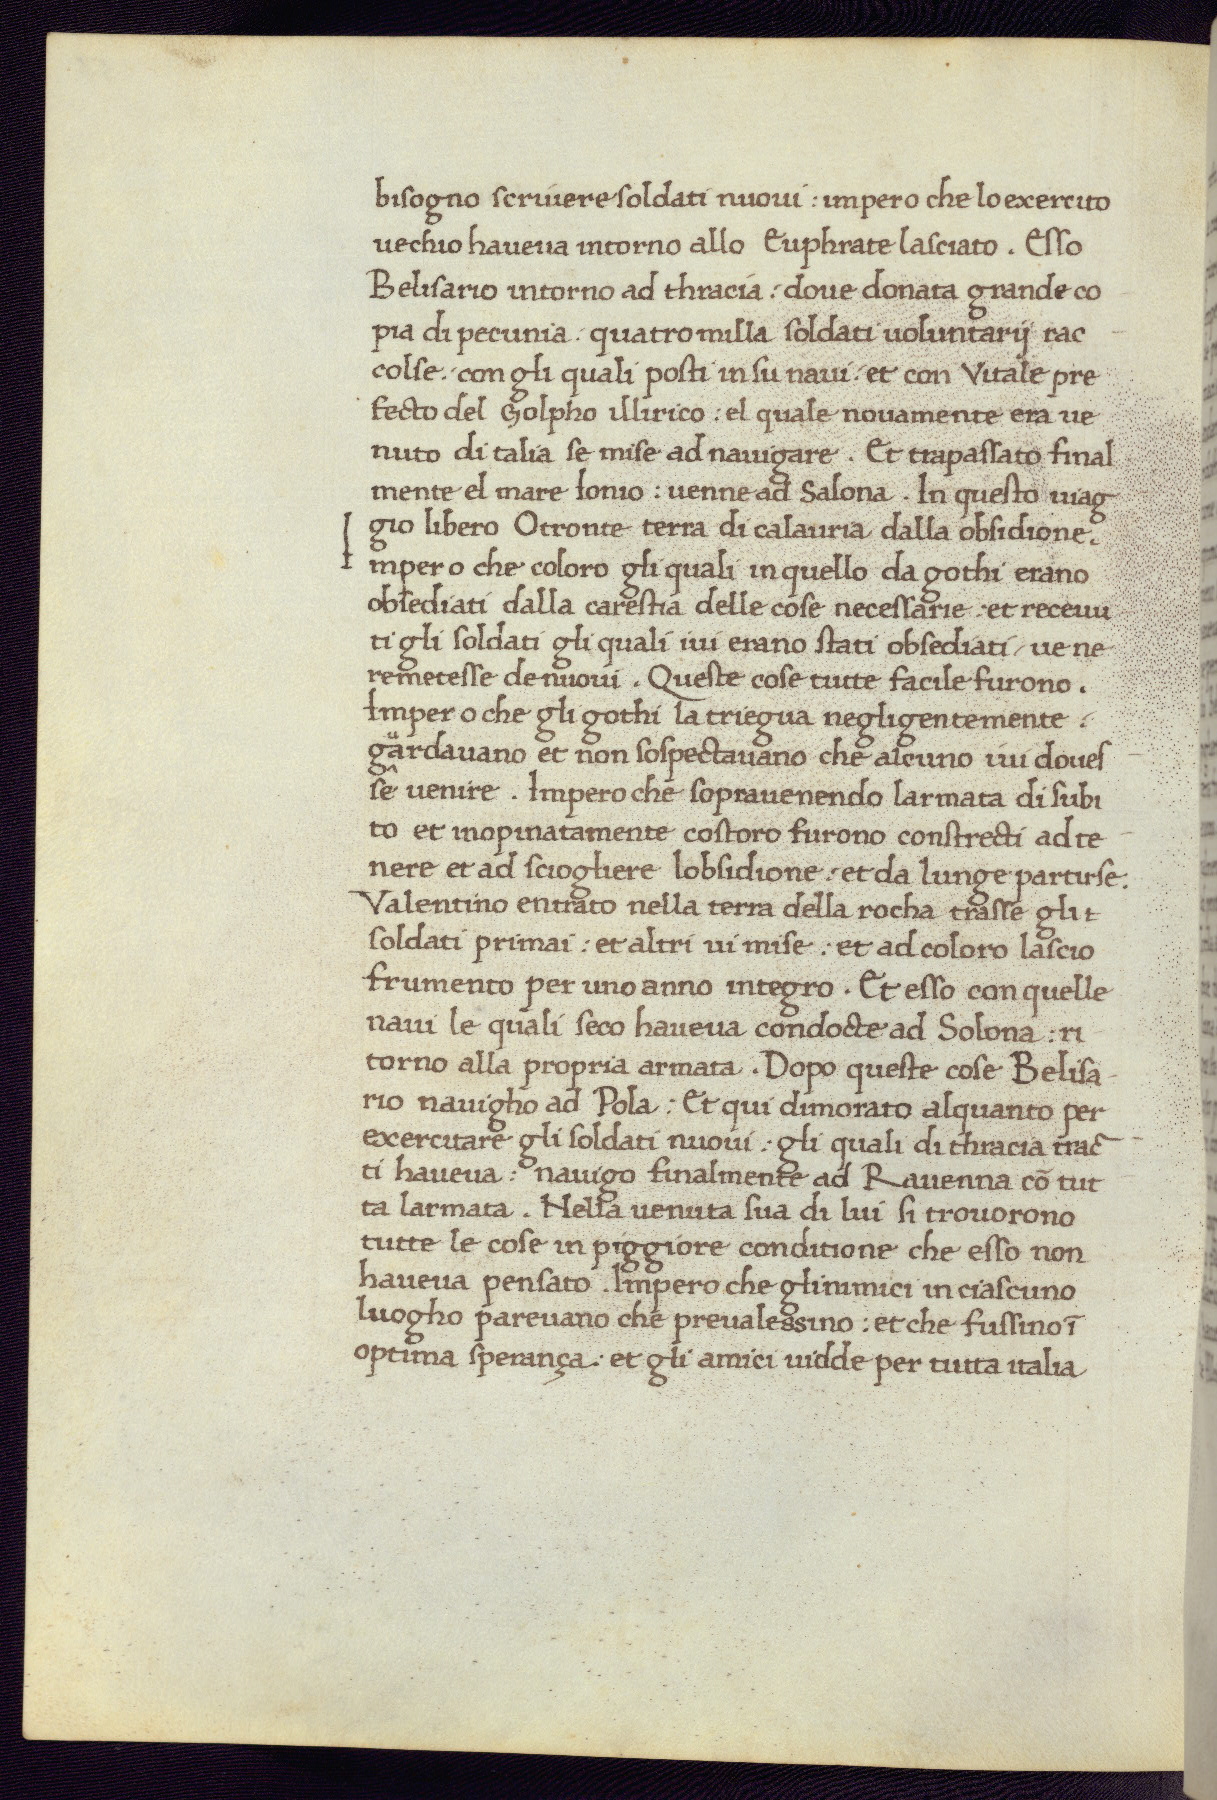 bisogno scriuere soldati nuoui : impero che lo exercito
uechio haueua intorno allo Euphrate lasciato . Esso
Belisario intorno ad thracia : doue donata grande co
pia di pecunia . quatro milla soldati uoluntarij rac
colse . con gli quali posti in su naui . et con Vitale pre
fecto del Golpho illirico : el quale nouamente era ue
nuto di talia se mise ad nauigare . Et trapassato final
mente el mare Ionio : uenne ad Salona . In questo uiag
gio libero Otronte terra di calauria dalla obsidione .
Impero che coloro gli quali in quello da gothi erano
obsediati dalla carestia delle cose necessarie : et receuu
ti gli soldati gli quali iui erano stati obsediati / ue ne
remetesse de nuoui . Queste cose tutte facile furono .
Impero che gli gothi la triegua negligentemente .
gᵘardauano et non sospectauano che alcuno iui doues
sê uenire . Impero che soprauenendo larmata di subi
to et inopinatamente costoro furono constrecti ad te
nere et ad sciogliere lobsidione : et da lunge partirse .
Valentino entrato nella terra della rocha trasse gli t
soldati primai : et altri ui mise : et ad coloro lascio
frumento per uno anno integro . Et esso con quelle
naui le quali seco haueua condocte ad Solona : ri
torno alla propria armata . Dopo queste cose Belisa
rio nauigho ad Pola : Et qui dimorato alquanto per
exercitare gli soldati nuoui : gli quali di thracia trac
ti haueua : nauigo finalmente ad Rauenna cō tut
ta larmata . Nella uenuta sua di lui si trouorono
tutte le cose in piggiore conditione che esso non
haueua pensato . Impero che glinimici in ciascuno
luogho pareuano che preualessino : et che fussino ī
optima sperança : et gli amici uidde per tutta italia